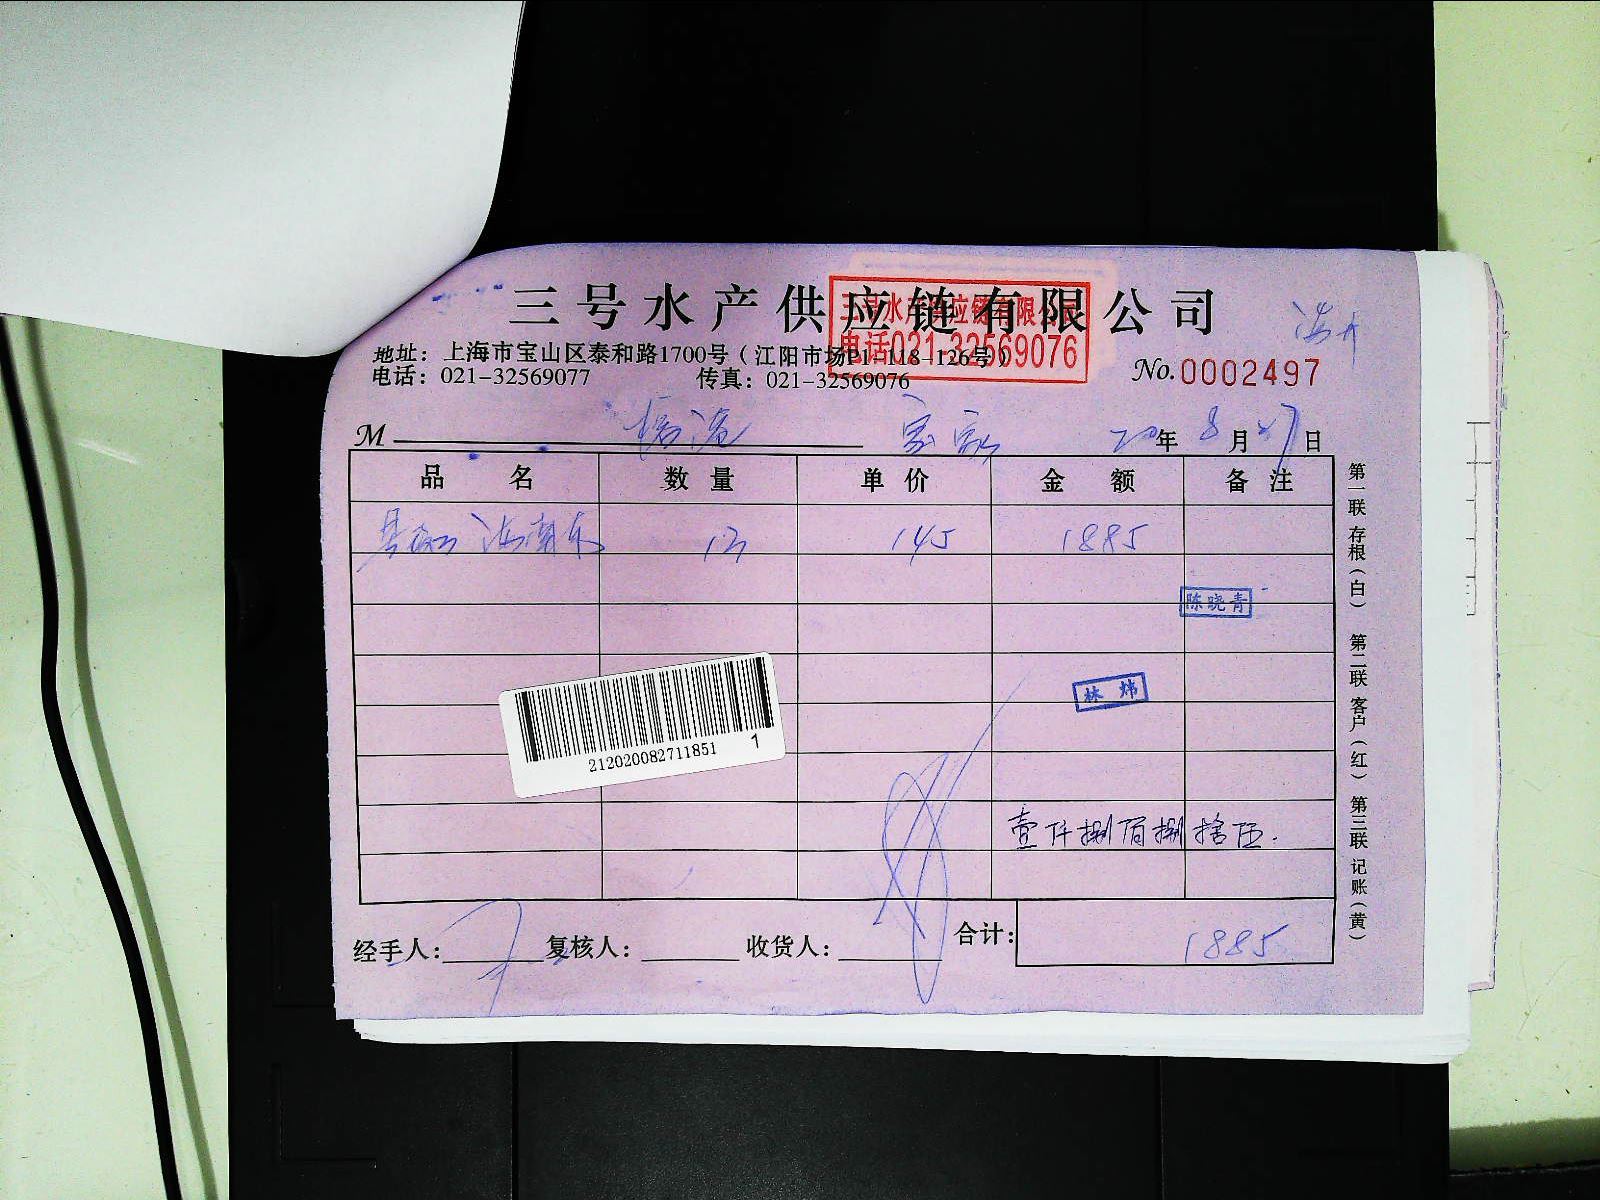 三号水产供应链有限公司
三号水产供应链有限公司
电话021-32569076
地址：上海市宝山区泰和路1700号（江阳市场P1-118-126号）
电话：021-32569077 传真：021-32569076
No.0002497
M 20年8月27日
品名 数量 单价 金额 备注
13 145 1885
陈晓青
林炜
212020082711851 1
壹仟捌佰捌拾伍.
经手人： 复核人： 收货人： 合计：1885
第一联 存根（白） 第二联 客户（红） 第三联 记账（黄）